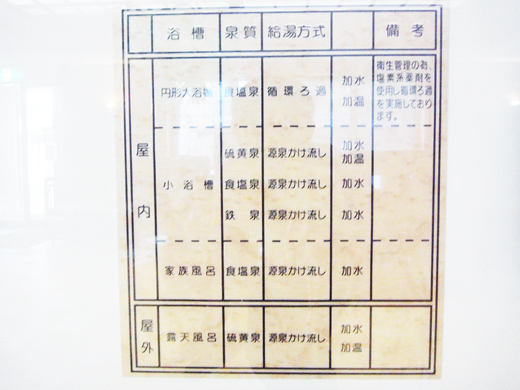 浴槽 泉質 給湯方式 備考
屋内
円形大浴槽 食塩泉 循環ろ過 加水 加温
衛生管理の為、
塩素系薬剤を
使用し循環ろ過
を実施しており
ます。
小浴槽
硫黄泉 源泉かけ流し 加水 加温
食塩泉 源泉かけ流し 加水
鉄泉 源泉かけ流し 加水
家族風呂 食塩泉 源泉かけ流し 加水
屋外
露天風呂 硫黄泉 源泉かけ流し 加水 加温